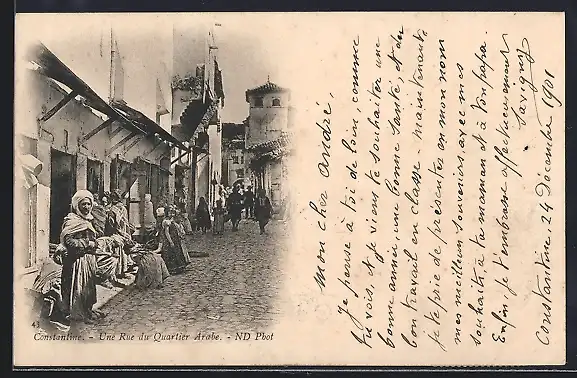 43
Constantine. - Une Rue du Quartier Arabe. - ND Phot
Mon cher André,
je pense à toi de loin, comme
tu vois, et je viens te souhaiter une
bonne année, une bonne santé, et du
travail en classe maintenant,
je te prie de présenter en mon nom
mes meilleurs souvenirs, avec mes
souhaits, à ta maman et à ton papa.
Enfin, je t'embrasse affectueusement
Savigny
Constantine, 24 Décembre 1901